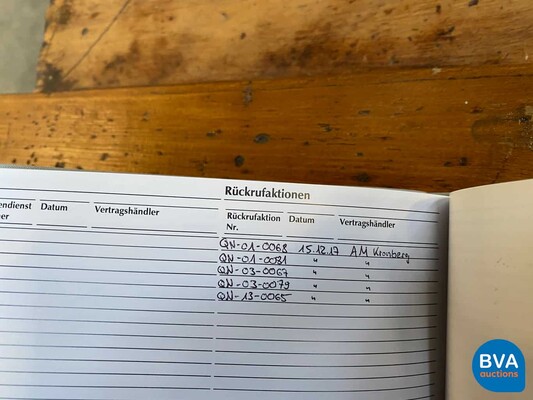 Rückrufaktionen
endienst Datum Vertragshändler Rückrufaktion Datum Vertragshändler
er Nr.
QN-01-0068 15.12.17 AM Kronberg
QN-01-0081 " "
QN-03-0067 " "
QN-03-0079 " "
QN-13-0065 " "
BVA
auctions